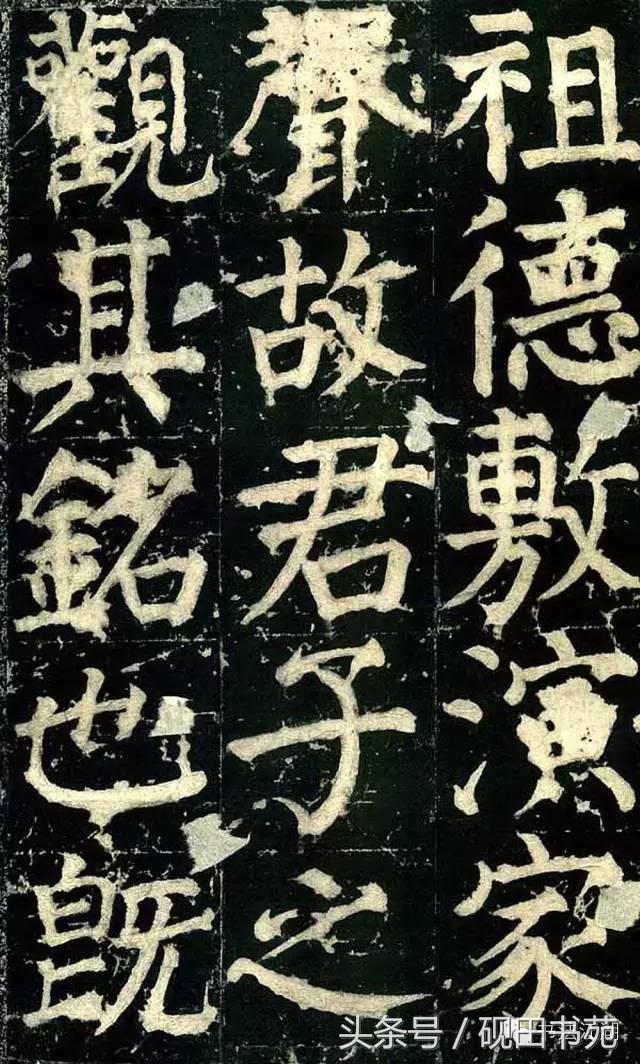 祖德敷演家
聲故君子之
觀其銘也既
头条号／砚田书苑